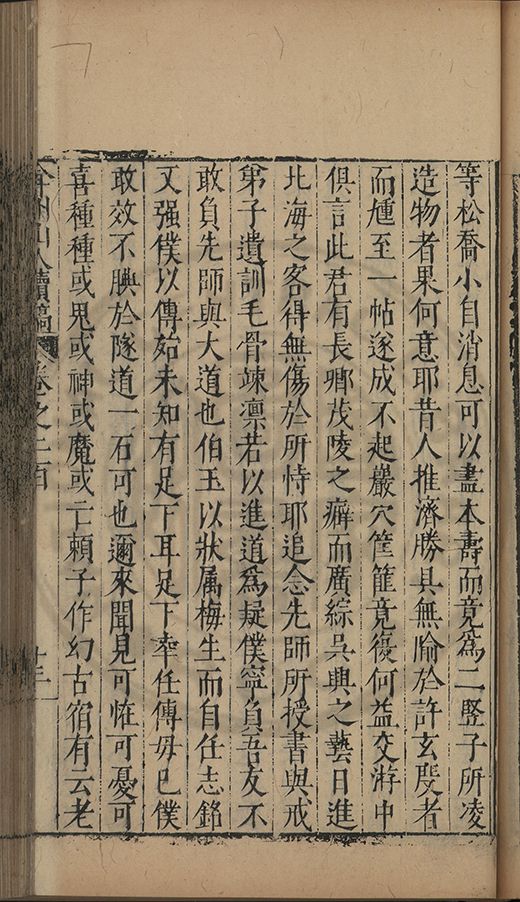 等松喬小自消息可以盡本壽而竟爲二豎子所凌
造物者果何意耶昔人推濟勝具無踰於許玄度者
而尰至一帖遂成不起嚴穴筐篚竟復何益交游中
俱言此君有長卿茂陵之癖而廣綜吳興之藝日進
北海之客得無傷於所恃耶追念先師所授書與戒
弟子遺訓毛骨竦凛若以進道爲疑僕寧負吾友不
敢負先師與大道也伯玉以狀属梅生而自任志銘
又强僕以傳始未知有足下耳足下幸任傳毋已僕
敢效不腆於隧道一石可也邇來聞見可恠可憂可
喜種種或鬼或神或魔或亡賴子作幻古宿有云老
弇州山人續稿 卷之二百 十三